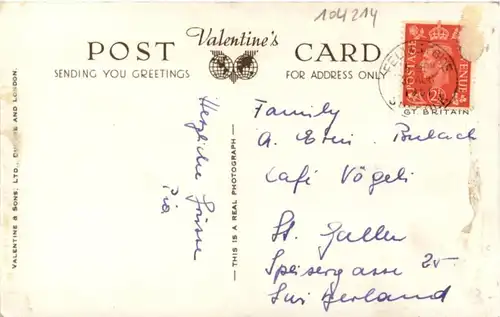 104214
Valentine's
POST CARD
SENDING YOU GREETINGS
FOR ADDRESS ONLY
POSTAGE REVENUE
GT. BRITAIN
VALENTINE & SONS, LTD., DUNDEE AND LONDON.
Herzliche Grüsse
Pia
— THIS IS A REAL PHOTOGRAPH —
Family
A.
Café Vögeli
St. Gallen
Speisergasse 25
Switzerland